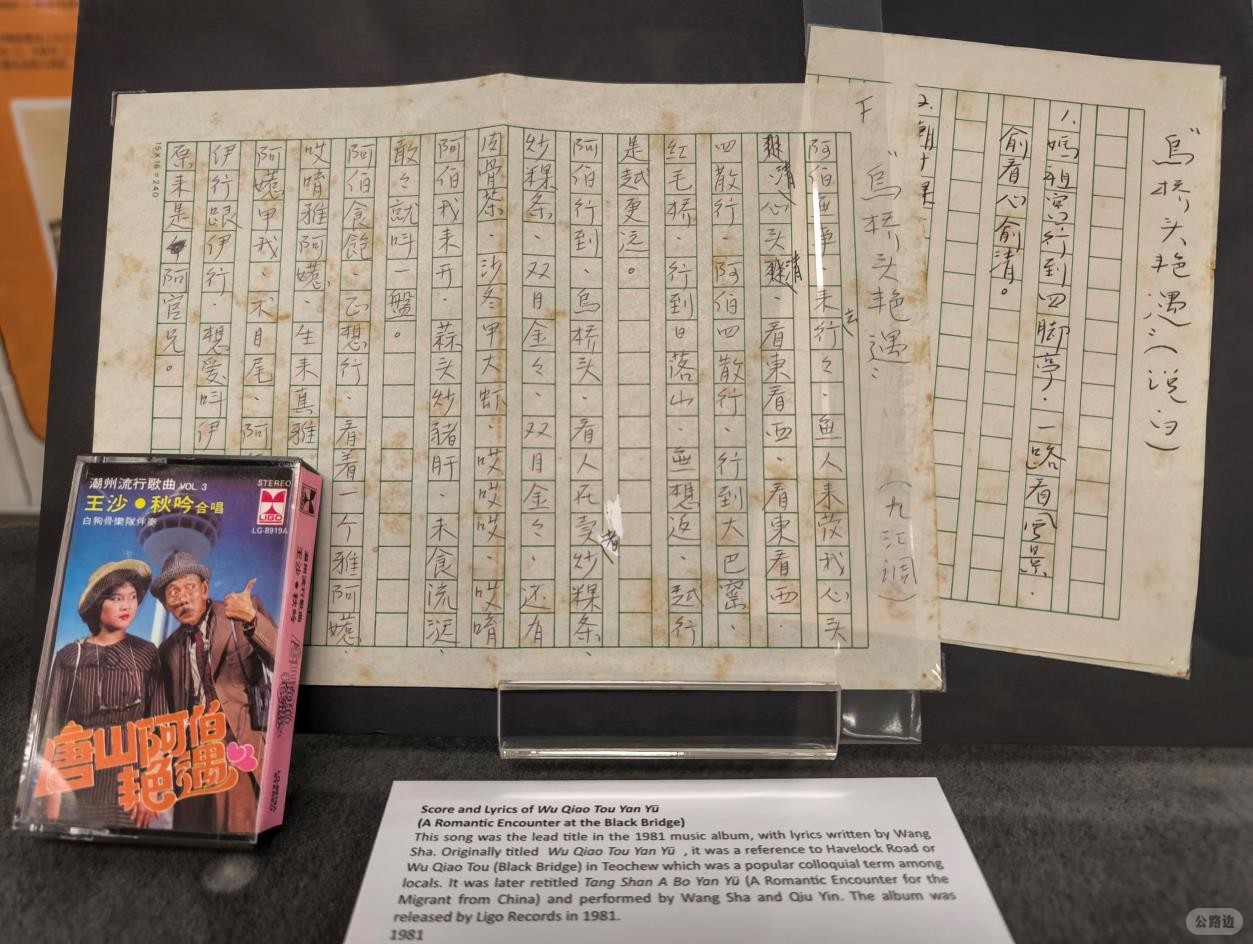 "烏桥头艳遇"(说白)
1. 媽祖宫行到四脚亭.一路看風景.
俞看心俞清。
2.
F
"烏桥头艳遇"(九江调)
阿伯無事.来行々.鱼人来 我心头
清心头 清.看東看西.看東看西.
四散行.阿伯四散行.行到大巴窰.
红毛桥.行到日落山.無想近.越行
是越更远。
阿伯行到.烏桥头.看人在賣炒粿条.
炒粿条.双目金々.双目金々.还有
肉骨茶.沙冬甲大虾.哎哎哎.哎唷
阿伯我来开.蒜头炒豬肝.未食流涎.
敢々就叫一盤。
阿伯食飽.正想行.看着一个雅阿嬑.
哎唷雅阿嬑.生来真雅
阿嬑甲我.木目尾.阿
伊行跟伊行.想爱叫伊
原来是阿官兄。
15X16=240
潮州流行歌曲 VOL.3
STEREO
王沙●秋吟合唱
白狗骨樂隊伴奏
LIGO
LG-8919A
唐山阿伯
艳遇
Score and Lyrics of Wu Qiao Tou Yan Yü
(A Romantic Encounter at the Black Bridge)
This song was the lead title in the 1981 music album, with lyrics written by Wang
Sha. Originally titled Wu Qiao Tou Yan Yü , it was a reference to Havelock Road or
Wu Qiao Tou (Black Bridge) in Teochew which was a popular colloquial term among
locals. It was later retitled Tang Shan A Bo Yan Yü (A Romantic Encounter for the
Migrant from China) and performed by Wang Sha and Qiu Yin. The album was
released by Ligo Records in 1981.
1981
公路边